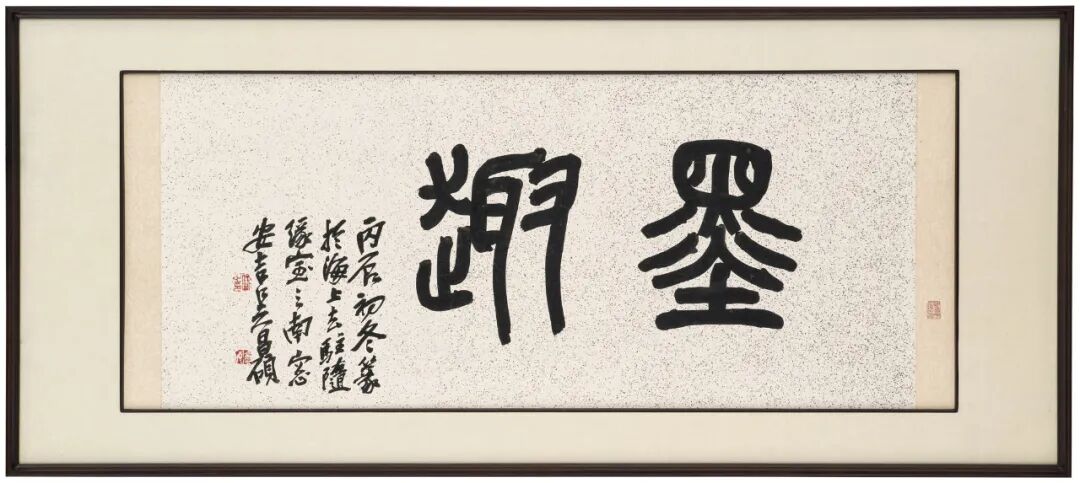 墨趣
丙辰初冬篆
於海上去駐隨
緣室之南窓
安吉吳昌碩